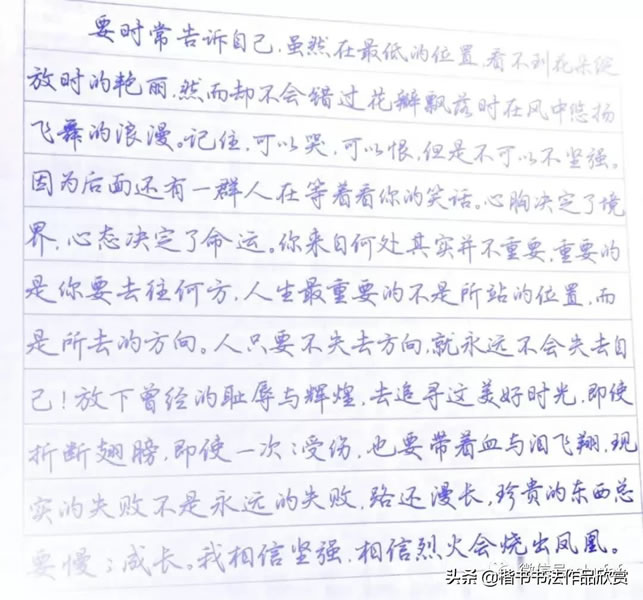 要时常告诉自己,虽然在最低的位置,看不到花朵绽
放时的艳丽,然而却不会错过花瓣飘落时在风中悠扬
飞舞的浪漫。记住,可以哭,可以恨,但是不可以不坚强。
因为后面还有一群人在等着看你的笑话。心胸决定了境
界,心态决定了命运。你来自何处其实并不重要,重要的
是你要去往何方,人生最重要的不是所站的位置,而
是所去的方向。人只要不失去方向,就永远不会失去自
己!放下曾经的耻辱与辉煌,去追寻这美好时光,即使
折断翅膀,即使一次:受伤,也要带着血与泪飞翔,现
实的失败不是永远的失败,路还漫长,珍贵的东西总
要慢:成长。我相信坚强,相信烈火会烧出凤凰。
头条@楷书书法作品欣赏